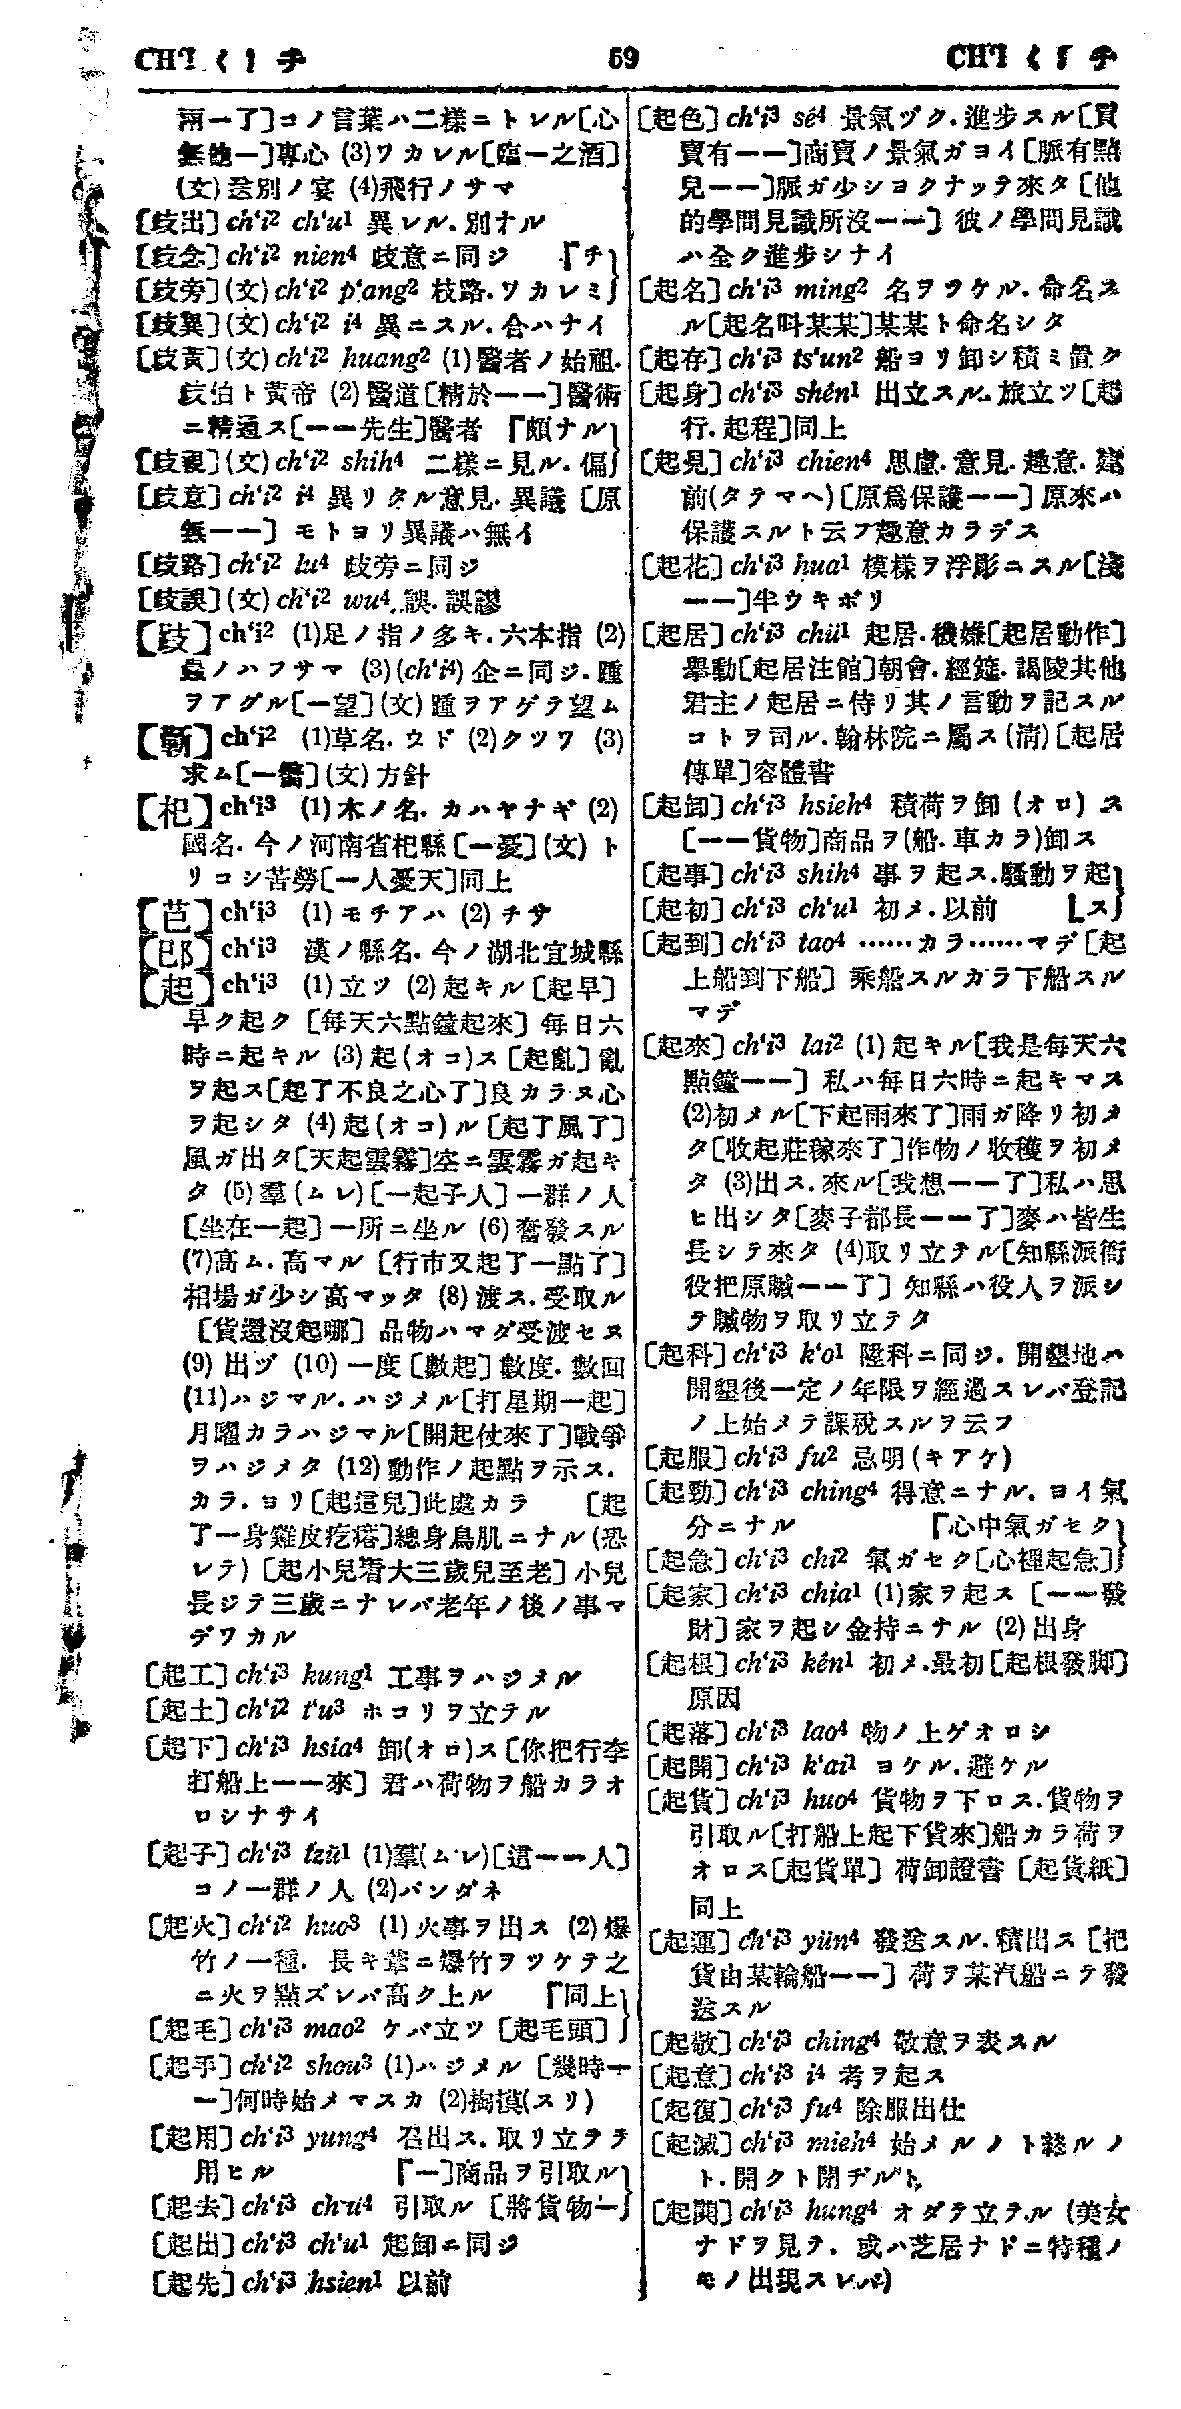 CH'I ㄑㄧ チ
59
CH'I ㄑㄧ チ
兩一了]コノ言葉ハ二樣ニトレル[心
無他一]專心 (3)ワカレル[臨一之酒]
(文)送別ノ宴 (4)飛行ノサマ
[歧出] ch‘i2 ch‘u1 異レル. 別ナル
[歧念] ch‘i2 nien4 歧意ニ同ジ 『チ
[歧旁](文) ch‘i2 p‘ang2 枝路. ワカレミ
[歧異](文) ch‘i2 i4 異ニスル. 合ハナイ
[歧黃](文) ch‘i2 huang2 (1)醫者ノ始祖.
歧伯ト黃帝 (2)醫道[精於一一]醫術
ニ精通ス[一一先生]醫者 『頗ナル
[歧視](文) ch‘i2 shih4 二樣ニ見ル. 偏
[歧意] ch‘i2 i4 異リタル意見. 異議 [原
無一一] モトヨリ異議ハ無イ
[歧路] ch‘i2 lu4 歧旁ニ同ジ
[歧誤](文) ch‘i2 wu4 誤. 誤謬
【跂】ch‘i2 (1)足ノ指ノ多キ. 六本指 (2)
蟲ノハフサマ (3)(ch‘i4) 企ニ同ジ. 踵
ヲアグル[一望](文) 踵ヲアゲテ望ム
【蘄】ch‘i2 (1)草名. ウド (2)クツワ (3)
求ム[一嚮](文) 方針
【杞】ch‘i3 (1)木ノ名. カハヤナギ (2)
國名. 今ノ河南省杞縣[一憂](文) ト
リコシ苦勞[一人憂天]同上
【芑】ch‘i3 (1)モチアハ (2)チサ
【邔】ch‘i3 漢ノ縣名. 今ノ湖北宜城縣
【起】ch‘i3 (1)立ツ (2)起キル[起早]
早ク起ク [每天六點鐘起來] 每日六
時ニ起キル (3)起(オコ)ス[起亂]亂
ヲ起ス[起了不良之心了]良カラヌ心
ヲ起シタ (4)起(オコ)ル[起了風了]
風ガ出タ[天起雲霧]空ニ雲霧ガ起キ
タ (5)羣(ムレ)[一起子人]一群ノ人
[坐在一起]一所ニ坐ル (6)奮發スル
(7)高ム. 高マル [行市又起了一點了]
相場ガ少シ高マッタ (8)渡ス. 受取ル
[貨還沒起哪] 品物ハマダ受渡セヌ
(9) 出ヅ (10) 一度[數起]數度. 數回
(11)ハジマル. ハジメル[打星期一起]
月曜カラハジマル[開起仗來了]戰爭
ヲハジメタ (12)動作ノ起點ヲ示ス.
カラ. ヨリ[起這兒]此處カラ [起
了一身雞皮疙瘩]總身鳥肌ニナル(恐
レテ) [起小兒看大三歲兒至老]小兒
長ジテ三歲ニナレバ老年ノ後ノ事マ
デワカル
[起工] ch‘i3 kung1 工事ヲハジメル
[起土] ch‘i2 t‘u3 ホコリヲ立テル
[起下] ch‘i3 hsia4 卸(オロ)ス[你把行李
打船上一一來] 君ハ荷物ヲ船カラオ
ロシナサイ
[起子] ch‘i3 tzŭ1 (1)羣(ムレ)[這一一人]
コノ一群ノ人 (2)パンダネ
[起火] ch‘i2 huo3 (1)火事ヲ出ス (2)爆
竹ノ一種. 長キ葦ニ爆竹ヲツケテ之
ニ火ヲ點ズレバ高ク上ル 『同上
[起毛] ch‘i3 mao2 ケバ立ツ [起毛頭]
[起手] ch‘i2 shou3 (1)ハジメル [幾時一
一]何時始メマスカ (2)掏摸(スリ)
[起用] ch‘i3 yung4 召出ス. 取リ立テテ
用ヒル 『一]商品ヲ引取ル
[起去] ch‘i3 ch‘ü4 引取ル [將貨物一
[起出] ch‘i3 ch‘u1 起卸ニ同ジ
[起先] ch‘i3 hsien1 以前
[起色] ch‘i3 sé4 景氣ヅク. 進步スル[買
賣有一一]商賣ノ景氣ガヨイ[脈有點
兒一一]脈ガ少シヨクナッテ來タ[他
的學問見識所沒一一] 彼ノ學問見識
ハ全ク進步シナイ
[起名] ch‘i3 ming2 名ヲツケル. 命名ス
ル[起名叫某某]某某ト命名シタ
[起存] ch‘i3 ts‘un2 船ヨリ卸シ積ミ置ク
[起身] ch‘i3 shén1 出立スル. 旅立ツ[起
行. 起程]同上
[起見] ch‘i3 chien4 思慮. 意見. 趣意. 建
前(タテマヘ)[原爲保護一一] 原來ハ
保護スルト云フ趣意カラデス
[起花] ch‘i3 hua1 模樣ヲ浮彫ニスル[淺
一一]半ウキボリ
[起居] ch‘i3 chü1 起居. 機嫌[起居動作]
擧動[起居注館]朝會. 經筵. 謁陵其他
君主ノ起居ニ侍リ其ノ言動ヲ記スル
コトヲ司ル. 翰林院ニ屬ス(淸)[起居
傳單]容體書
[起卸] ch‘i3 hsieh4 積荷ヲ卸(オロ)ス
[一一貨物]商品ヲ(船. 車カラ)卸ス
[起事] ch‘i3 shih4 事ヲ起ス. 騷動ヲ起
[起初] ch‘i3 ch‘u1 初メ. 以前 ⌊ス
[起到] ch‘i3 tao4 ……カラ……マデ[起
上船到下船] 乘船スルカラ下船スル
マデ
[起來] ch‘i3 lai2 (1)起キル[我是每天六
點鐘一一] 私ハ每日六時ニ起キマス
(2)初メル[下起雨來了]雨ガ降リ初メ
タ[收起莊稼來了]作物ノ收穫ヲ初メ
タ (3)出ス. 來ル[我想一一了]私ハ思
ヒ出シタ[麥子都長一一了]麥ハ皆生
長シテ來タ (4)取リ立テル[知縣派衙
役把原贓一一了] 知縣ハ役人ヲ派シ
テ贓物ヲ取リ立テタ
[起科] ch‘i3 k‘o1 陞科ニ同ジ. 開墾地ハ
開墾後一定ノ年限ヲ經過スレバ登記
ノ上始メテ課稅スルヲ云フ
[起服] ch‘i3 fu2 忌明(キアケ)
[起勁] ch‘i3 ching4 得意ニナル. ヨイ氣
分ニナル 『心中氣ガセク
[起急] ch‘i3 chi2 氣ガセク[心裡起急]
[起家] ch‘i3 chia1 (1)家ヲ起ス [一一發
財]家ヲ起シ金持ニナル (2)出身
[起根] ch‘i3 kén1 初メ. 最初[起根發脚]
原因
[起落] ch‘i3 lao4 物ノ上ゲオロシ
[起開] ch‘i3 k‘ai1 ヨケル. 避ケル
[起貨] ch‘i3 huo4 貨物ヲ下ロス. 貨物ヲ
引取ル[打船上起下貨來]船カラ荷ヲ
オロス[起貨單] 荷卸證書 [起貨紙]
同上
[起運] ch‘i3 yün4 發送スル. 積出ス [把
貨由某輪船一一] 荷ヲ某汽船ニテ發
送スル
[起敬] ch‘i3 ching4 敬意ヲ表スル
[起意] ch‘i3 i4 考ヲ起ス
[起復] ch‘i3 fu4 除服出仕
[起滅] ch‘i3 mieh4 始メルノト終ルノ
ト. 開クト閉ヂルト
[起鬨] ch‘i3 hung4 オダテ立テル (美女
ナドヲ見テ. 或ハ芝居ナドニ特種ノ
モノ出現スレバ)